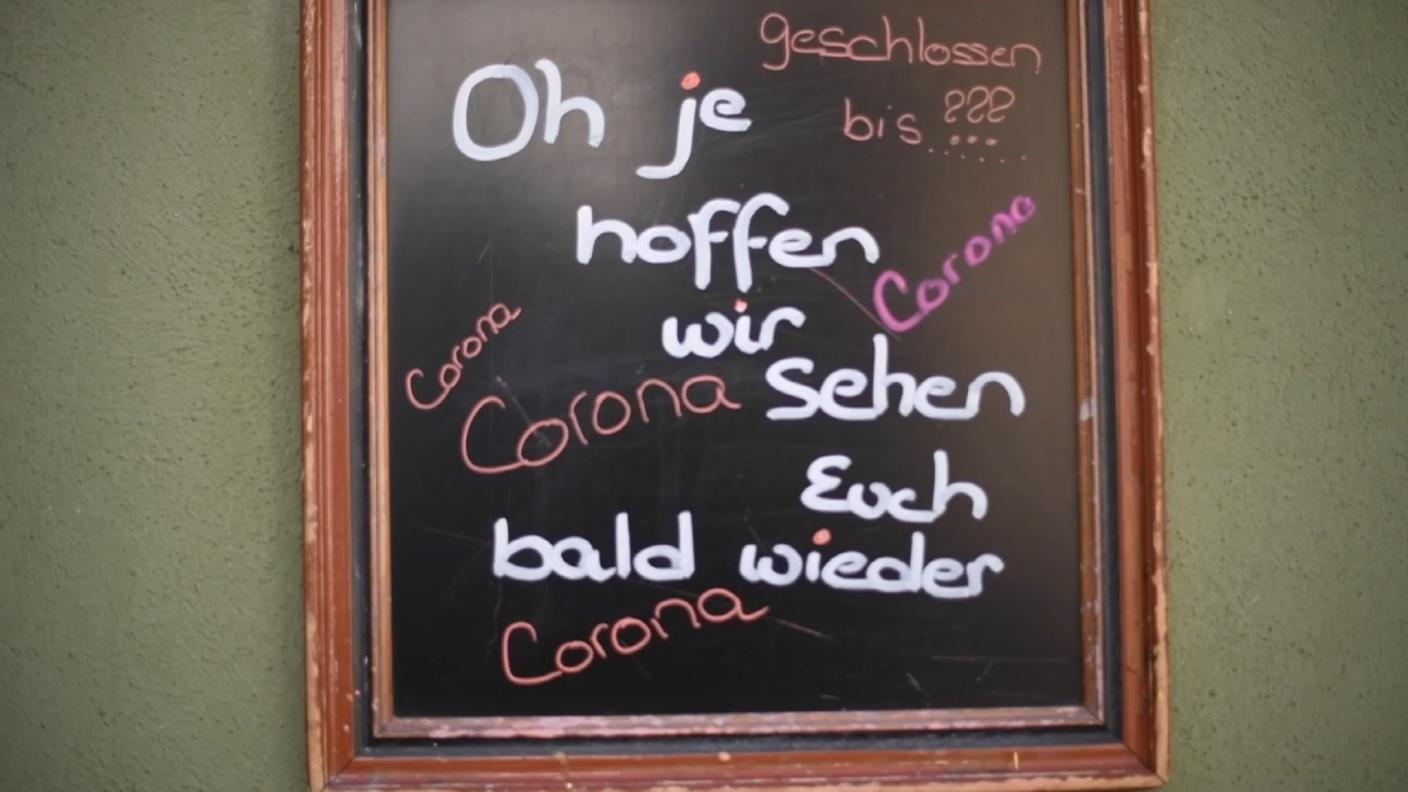 geschlossen
Oh je
bis ???......
hoffen
Corona
wir
Corona
Corona
sehen
Euch
bald wieder
Corona